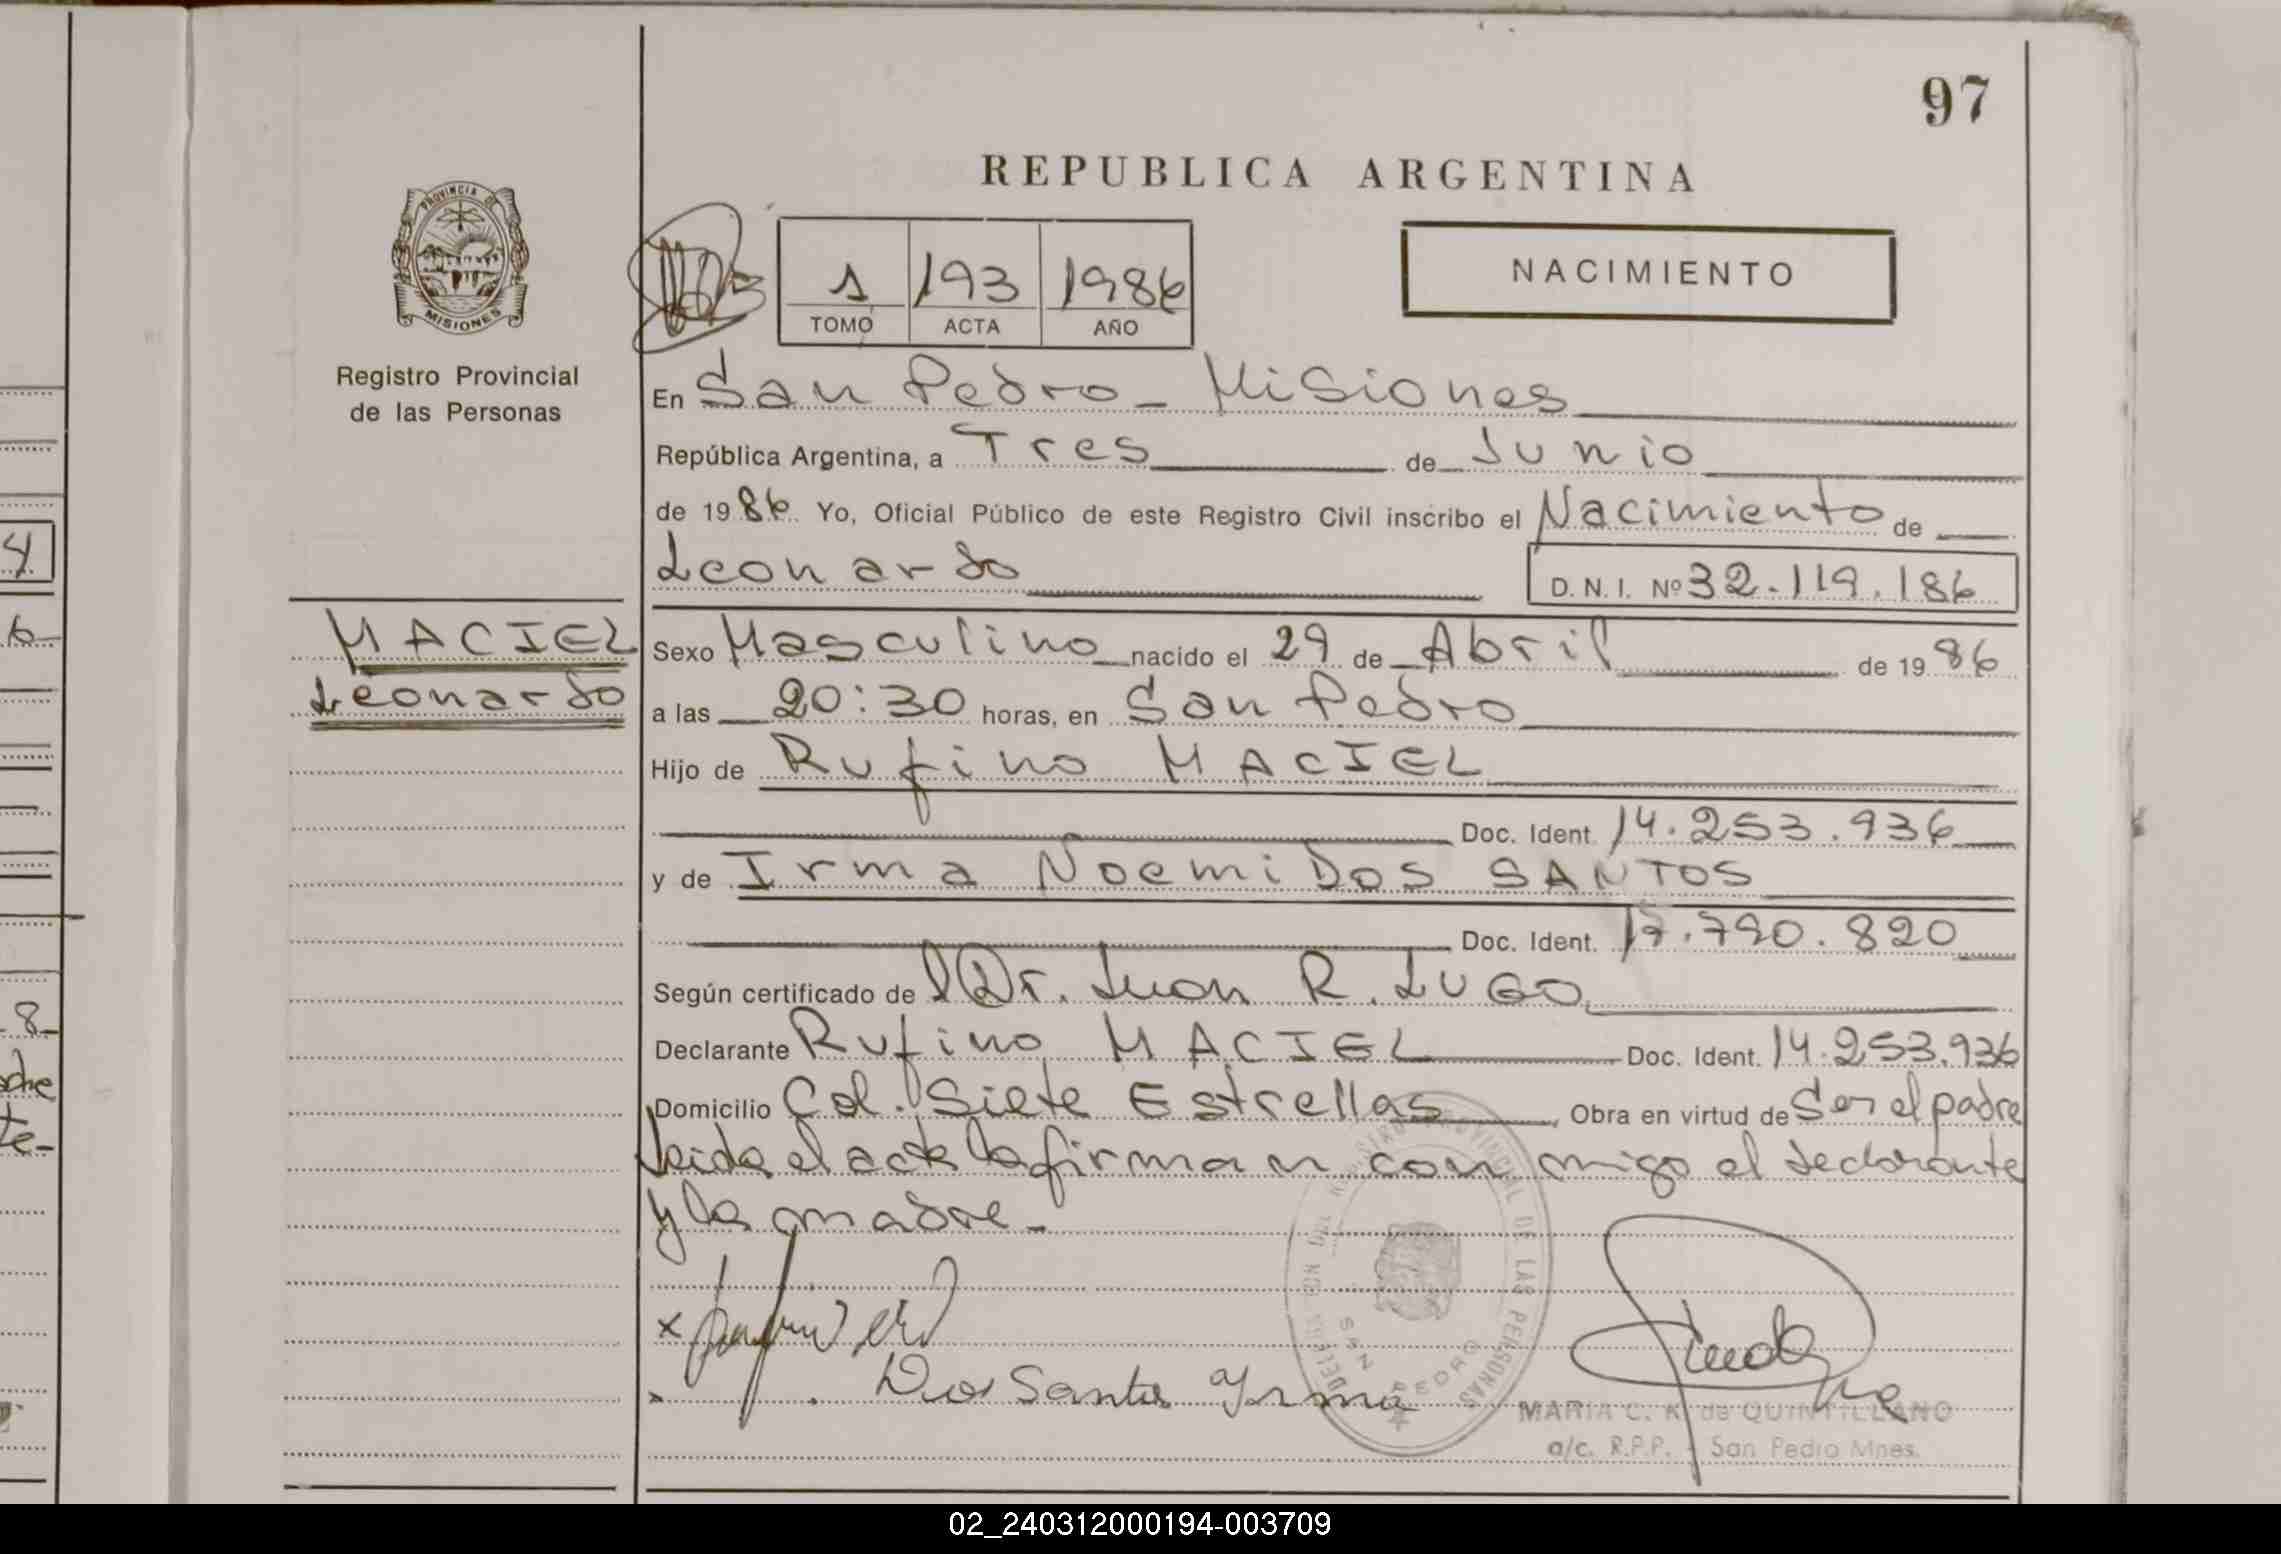 97
REPUBLICA ARGENTINA
PROVINCIA DE
MISIONES
Registro Provincial
de las Personas
1 193 1986
TOMO ACTA AÑO
NACIMIENTO
En San Pedro - Misiones
República Argentina, a Tres de Junio
de 1986 Yo, Oficial Público de este Registro Civil inscribo el Nacimiento de
Leonardo D. N. I. Nº 32.119.186
MACIEL
Leonardo
Sexo Masculino nacido el 29 de Abril de 1986
a las 20:30 horas, en San Pedro
Hijo de Rufino MACIEL
Doc. Ident. 14.253.936
y de Irma Noemi Dos SANTOS
Doc. Ident. 17.790.820
Según certificado de Dr. Juan R. LUGO
Declarante Rufino MACIEL Doc. Ident. 14.253.936
Domicilio Col. Siete Estrellas, Obra en virtud de Ser el padre
Leida el acta la firman con migo el declarante
y la madre.-
DELEGACION DEL REGISTRO PROVINCIAL DE LAS PERSONAS
SAN PEDRO
x
x Dos Santos Yrma
MARIA C. K. de QUINTILLANO
a/c. R.P.P. - San Pedro Mnes.
02_240312000194-003709